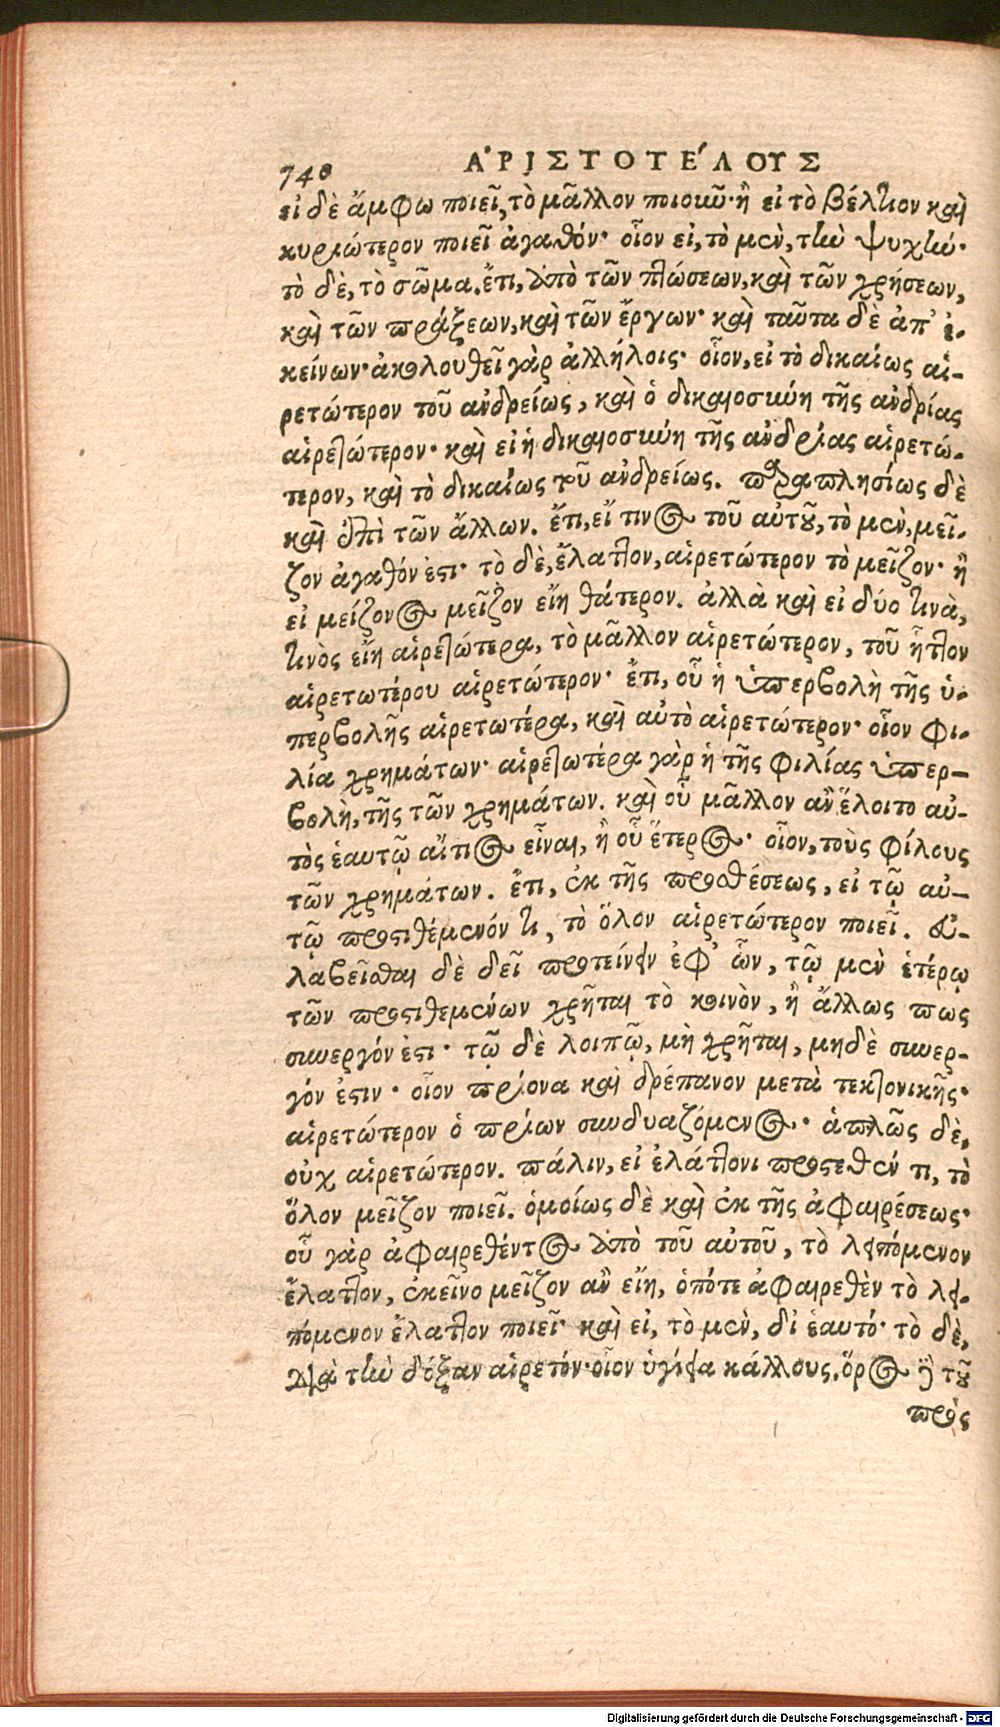 740 ἈΡΙΣΤΟΤΈΛΟΥΣ
εἰ δὲ ἄμφω ποιεῖ, τὸ μᾶλλον ποιοιοῦν· ἢ εἰ τὸ βέλτιον καὶ
κυριώτερον ποιεῖ ἀγαθόν· οἷον εἰ, τὸ μὲν, τὴν ψυχήν·
τὸ δὲ, τὸ σῶμα. ἔτι, ἀπὸ τῶν πτώσεων, καὶ τῶν χρήσεων,
καὶ τῶν πράξεων, καὶ τῶν ἔργων· καὶ ταῦτα δὲ ἀπ' ἐ-
κείνων· ἀκολουθεῖ γὰρ ἀλλήλοις· οἷον, εἰ τὸ δικαίως αἱ-
ρετώτερον τοῦ ἀνδρείως, καὶ ὁ δικαιοσύνη τῆς ἀνδρίας
αἱρετώτερον· καὶ εἰ ἡ δικαιοσύνη τῆς ἀνδρίας αἱρετώ-
τερον, καὶ τὸ δικαίως τοῦ ἀνδρείως. παραπλησίως δὲ
καὶ ἐπὶ τῶν ἄλλων. ἔτι, εἴ τινος τοῦ αὐτοῦ, τὸ μὲν, μεῖ-
ζον ἀγαθόν ἐστι· τὸ δὲ, ἔλαττον, αἱρετώτερον τὸ μεῖζον· ἢ
εἰ μείζονος μεῖζον εἴη θάτερον. ἀλλὰ καὶ εἰ δύο τινὰ,
τινὸς εἴη αἱρετώτερα, τὸ μᾶλλον αἱρετώτερον, τοῦ ἧττον
αἱρετωτέρου αἱρετώτερον· ἔτι, οὗ ἡ ὑπερβολὴ τῆς ὑ-
περβολῆς αἱρετωτέρα, καὶ αὐτὸ αἱρετώτερον· οἷον φι-
λία χρημάτων· αἱρετωτέρα γὰρ ἡ τῆς φιλίας ὑπερ-
βολὴ, τῆς τῶν χρημάτων. καὶ οὗ μᾶλλον ἂν ἕλοιτο αὐ-
τὸς ἑαυτῷ αἴτιος εἶναι, ἢ οὗ ἕτερος· οἷον, τοὺς φίλους
τῶν χρημάτων. ἔτι, ἐκ τῆς προσθέσεως, εἰ τῷ αὐ-
τῷ προστιθέμενόν τι, τὸ ὅλον αἱρετώτερον ποιεῖ. εὐ-
λαβεῖσθαι δὲ δεῖ προτείνειν ἐφ' ὧν, τῷ μὲν ἑτέρῳ
τῶν προστιθεμένων χρῆται τὸ κοινὸν, ἢ ἄλλως πως
συνεργόν ἐστι· τῷ δὲ λοιπῷ, μὴ χρῆται, μηδὲ συνερ-
γόν ἐστιν· οἷον πρίονα καὶ δρέπανον μετὰ τεκτονικῆς·
αἱρετώτερον ὁ πρίων συνδυαζόμενος· ἁπλῶς δὲ,
οὐχ αἱρετώτερον. πάλιν, εἰ ἐλάττονι προστεθέν τι, τὸ
ὅλον μεῖζον ποιεῖ. ὁμοίως δὲ καὶ ἐκ τῆς ἀφαιρέσεως·
οὗ γὰρ ἀφαιρεθέντος ἀπὸ τοῦ αὐτοῦ, τὸ λειπόμενον
ἔλαττον, ἐκεῖνο μεῖζον ἂν εἴη, ὁπότε ἀφαιρεθὲν τὸ λει-
πόμενον ἔλαττον ποιεῖ· καὶ εἰ, τὸ μὲν, δι' ἑαυτό· τὸ δὲ,
διὰ τὴν δόξαν αἱρετόν· οἷον ὑγίεια κάλλους. ὅρος δὲ τοῦ
πρὸς
Digitalisierung gefördert durch die Deutsche Forschungsgemeinschaft - DFG